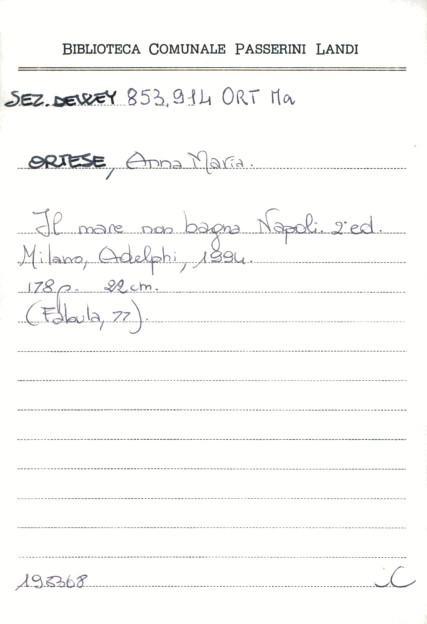 BIBLIOTECA COMUNALE PASSERINI LANDI
SEZ. DEWEY 853.914 ORT Ma
ORTESE, Anna Maria.
Il mare non bagna Napoli. 2ª ed.
Milano, Adelphi, 1994.
178 p. 22 cm.
(Fabula, 77).
195368 iC